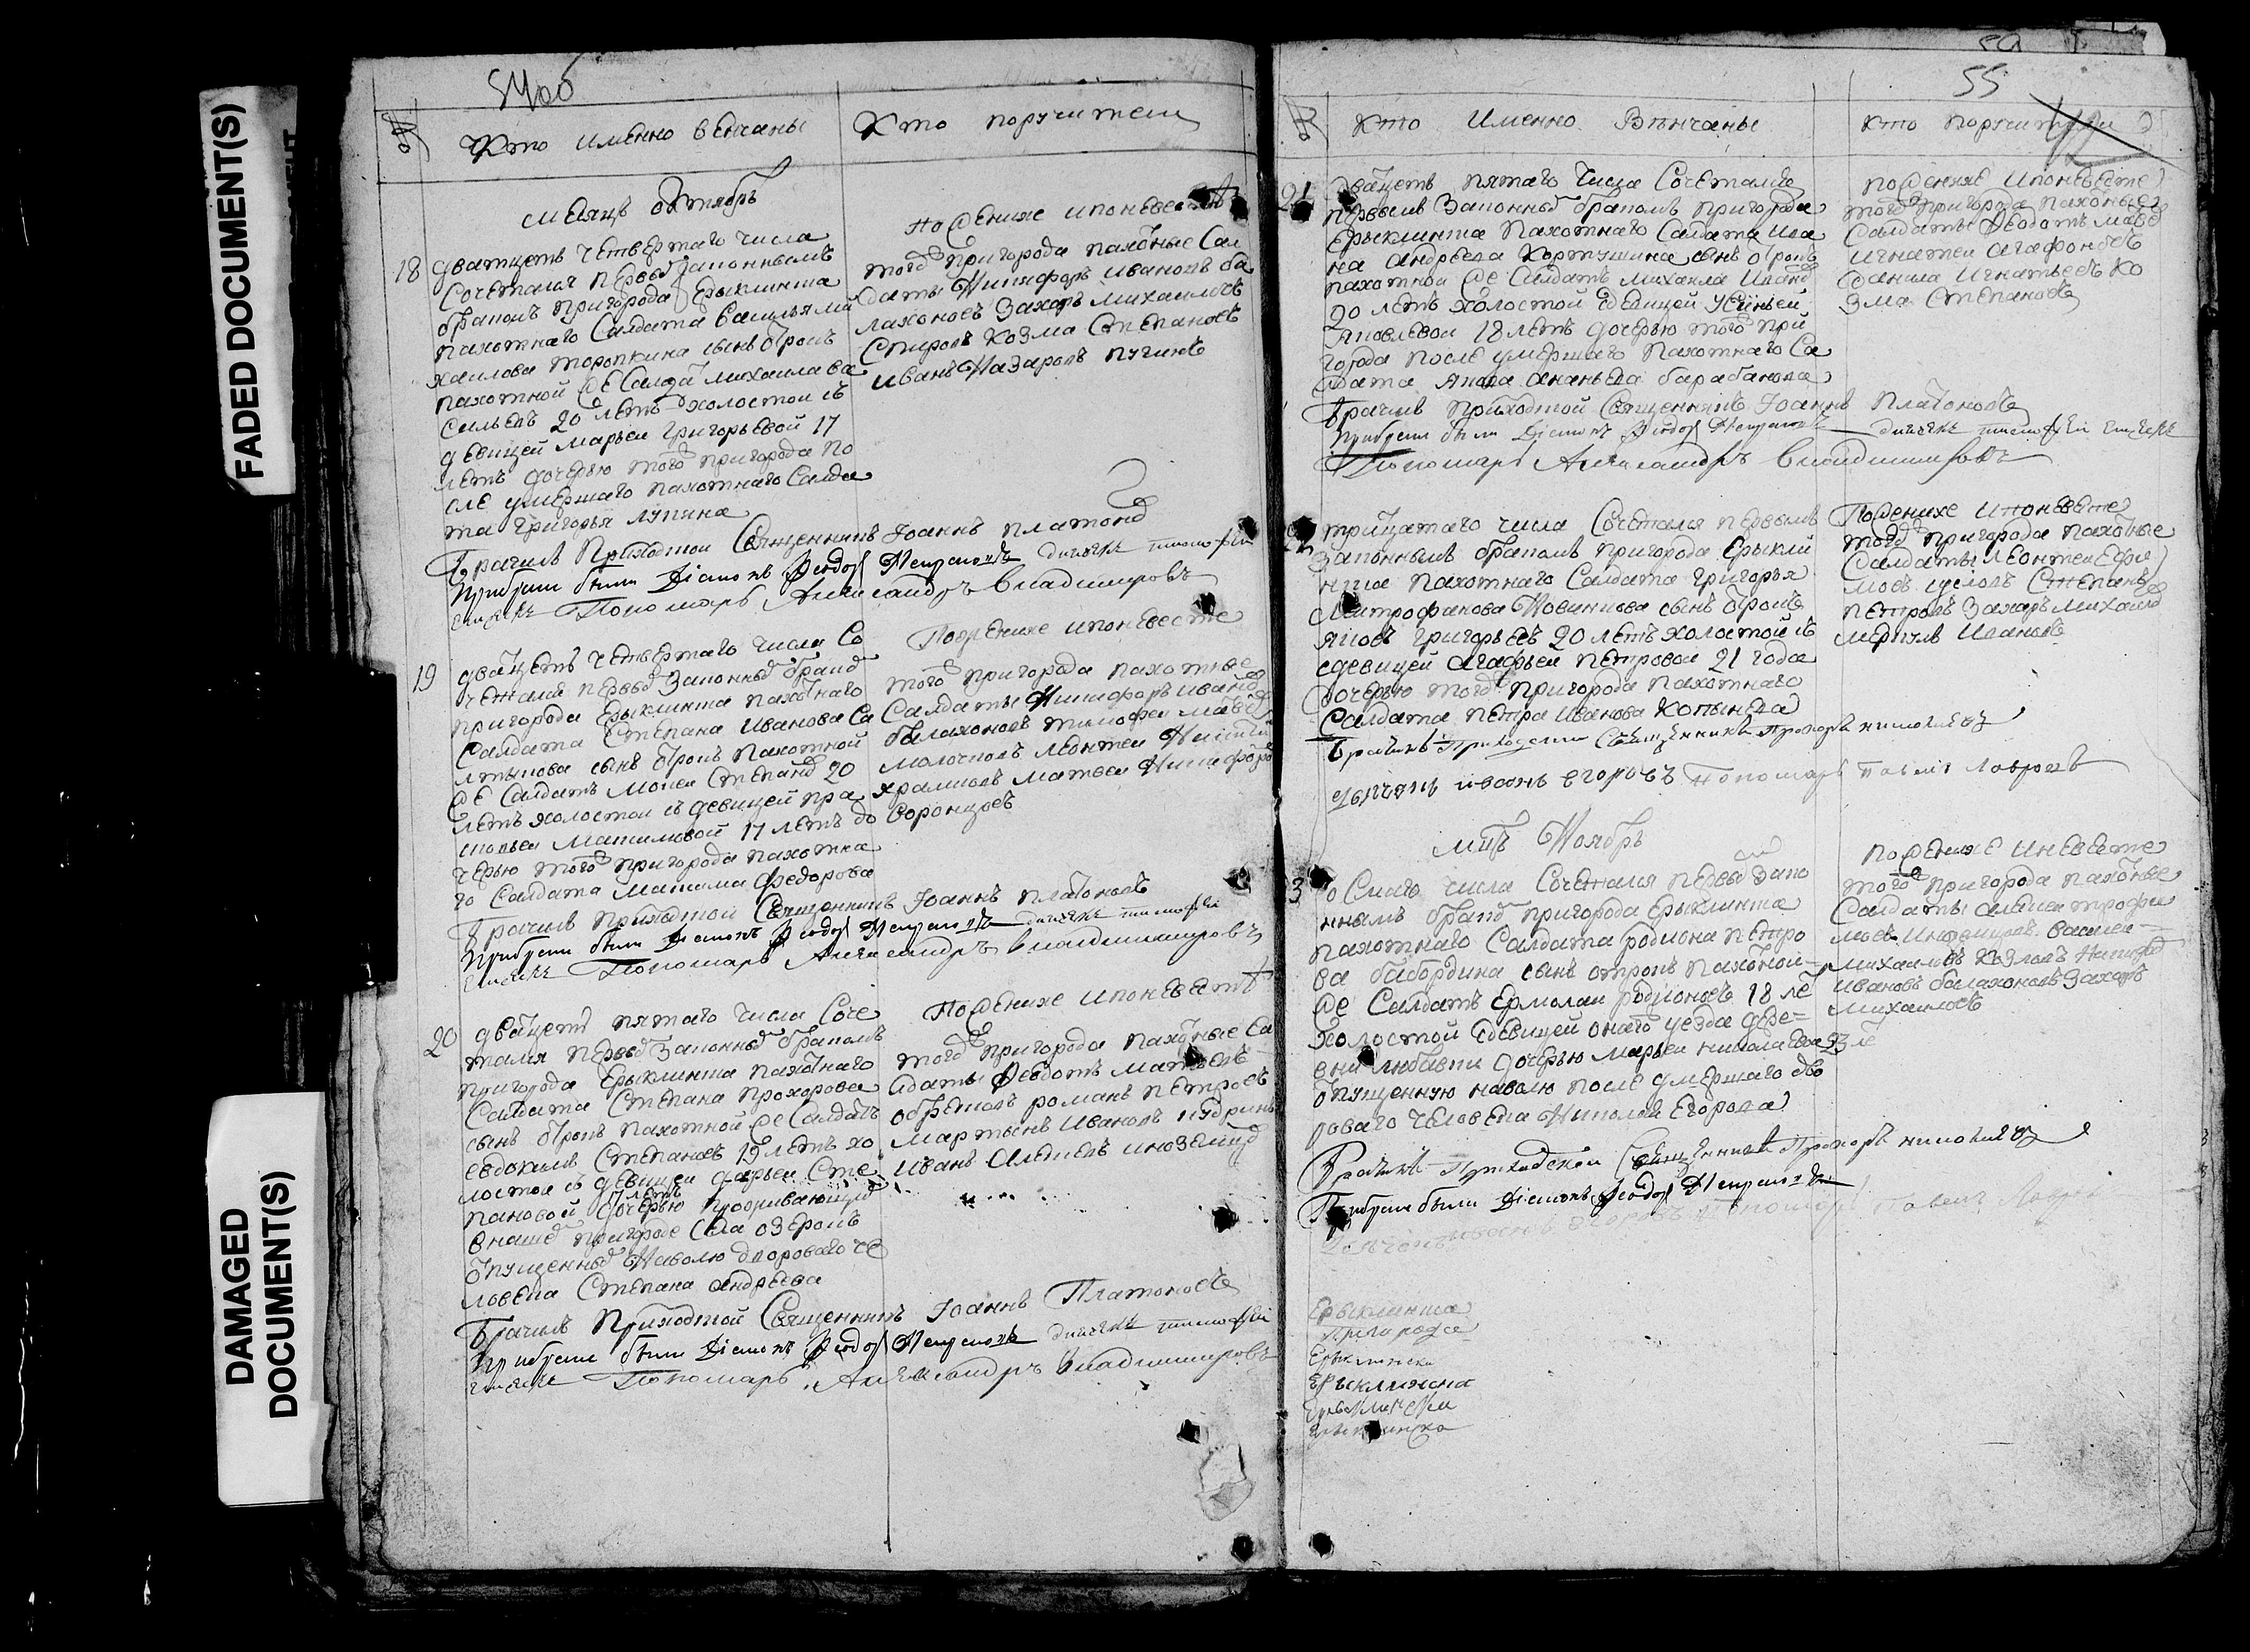 FADED DOCUMENT(S)
DAMAGED
DOCUMENT(S)
54об
№
Кто именно венчаны
Кто поручители
месяцъ октябрь
18
дватцеть четвертаго числа
сочетался первы законнымъ
бракомъ пригорода Ерыклинска
пахотнаго салдата Василья Ми
хаилова Торопкина сынъ отрокъ
пахотной же салда Михаила Ва
сильевъ 20 летъ холостои съ
девицей Марьеи Григорьевой 17
летъ дочерью того пригорода по
сле умершаго пахотнаго салда
та Григорья Лупина
по жениха и по невесте
того пригорода пахотные сал
даты Никифоръ Ивановъ Ба
лахоновъ Захаръ Михаиловъ
Спировъ Козма Степановъ
Иванъ Назаровъ Пугинъ
Брачилъ приходской священникъ Iоаннъ Платонов
При браке были Дiаконъ Феодоръ дьячекъ Тимофей
Пономарь Александръ Владимировъ
19
двацеть четвертаго числа со
четался первы законны брако
пригорода Ерыклинска пахотнаго
салдата Степана Иванова Са
лтыкова сынъ отрокъ пахотной
же салдатъ Мокеи Степано 20
летъ холостои съ девицей Пра
сковьеи Максимовой 17 летъ до
черью того пригорода пахотна
го салдата Максима Федорова
По жениха и по невесте
того пригорода пахотные
салдаты Никифоръ Ивано
Балахоновъ Тимофеи Матве
Молочковъ Леонтеи Никити
Храмковъ Матвеи Никифоро
Воронцовъ
Брачилъ приходской священникъ Iоаннъ Платоновъ
При браке были Дiаконъ Феодоръ дьячекъ Тимофей
Пономарь Александръ Владимировъ
20
двацеть пятаго числа соче
тался первы законны бракомъ
пригорода Ерыклинска пахотнаго
салдата Степана Прохорова
сынъ отрокъ пахотной же салдатъ
Евдокимъ Степановъ 19 летъ хо
лостои съ девицеи Дарьеи Сте
17 летъ
пановой дочерью проживающи
в наше пригороде села Озерокъ
отпущенны на волю двороваго че
ловека Степана Андреева
По жениха и по невесте
того пригорода пахотные са
лдаты Феодотъ Матвеевъ
Обрезковъ Романъ Петровъ
Мартынъ Ивановъ Кудринъ
Иванъ Алексеевъ Иноземцо
Брачилъ приходской священникъ Iоаннъ Платоновъ
При браке были Дiаконъ Феодоръ дьячекъ Тимофей
Пономарь Александръ Владимировъ
55
№
Кто именно венчаны
Кто поручители
21
двацеть пятаго числа сочетался
первымъ законны бракомъ пригорода
Ерыклинска пахотнаго салдата Ива
на Андреева Картушина сынъ отрокъ
пахотнои же салдатъ Михаила Ивано
20 летъ холостой с девицей Ксеньей
Яковлевои 18 летъ дочерью того при
города после умершаго пахотнаго са
лдата Якова Ананьева Барабанова
по женихе и по невесте
того пригорода пахотные
салдаты Феодотъ Матве
Игнатеи Агафоновъ
Данила Игнатьевъ Ко
зма Степановъ
Брачилъ приходской священникъ Iоаннъ Платоновъ
При браке были Дiаконъ Феодоръ дьячекъ Тимофей
Пономарь Александръ Владимировъ
трицатаго числа сочетался первымъ
законнымъ бракомъ пригорода Ерыкли
нска пахотнаго салдата Григорья
Митрофанова Новикова сынъ отрокъ
Яковъ Григорьевъ 20 летъ холостой съ
девицей Агафьеи Петровои 21 года
дочерью того пригорода пахотнаго
салдата Петра Иванова Копынева
По женихе и по невесте
того пригорода пахотные
салдаты Леонтеи Ефи
мовъ Степанъ
Петровъ Захаръ Михаило
Меркулъ Ивановъ
Брачилъ Приходской Священникъ Прохоръ Николаевъ
Дьячекъ Иванъ Егоровъ Пономарь Павелъ Лавровъ
мцъ Ноябрь
3
осмаго числа сочетался первы зако
ннымъ брако пригорода Ерыклинска
пахотнаго салдата Родиона Петро
ва Бабордина сынъ отрокъ пахотной
же салдатъ Ермолаи Родионовъ 18 ле
холостой с девицей онаго уезда дере
вни Любавки дочерью Марьеи Николаевой 23 ле
отпущенную на волю после умершаго дво
роваго человека Николая Егорова
По женихе и невесте
того пригорода пахотные
салдаты Алексеи Трофи
мовъ Василеи
Михаиловъ Козловъ Никифо
Ивановъ Балахоновъ Захаръ
Михаиловъ
Брачилъ Приходской Священникъ Прохоръ Николаевъ
При браке были Дiаконъ Феодоръ
Дьячекъ Иванъ Егоровъ Пономарь Павелъ Лавров
Ерыклинска
Пригорода
Ерыклинска
Ерыклинска
Ерыклинска
Ерыклинска